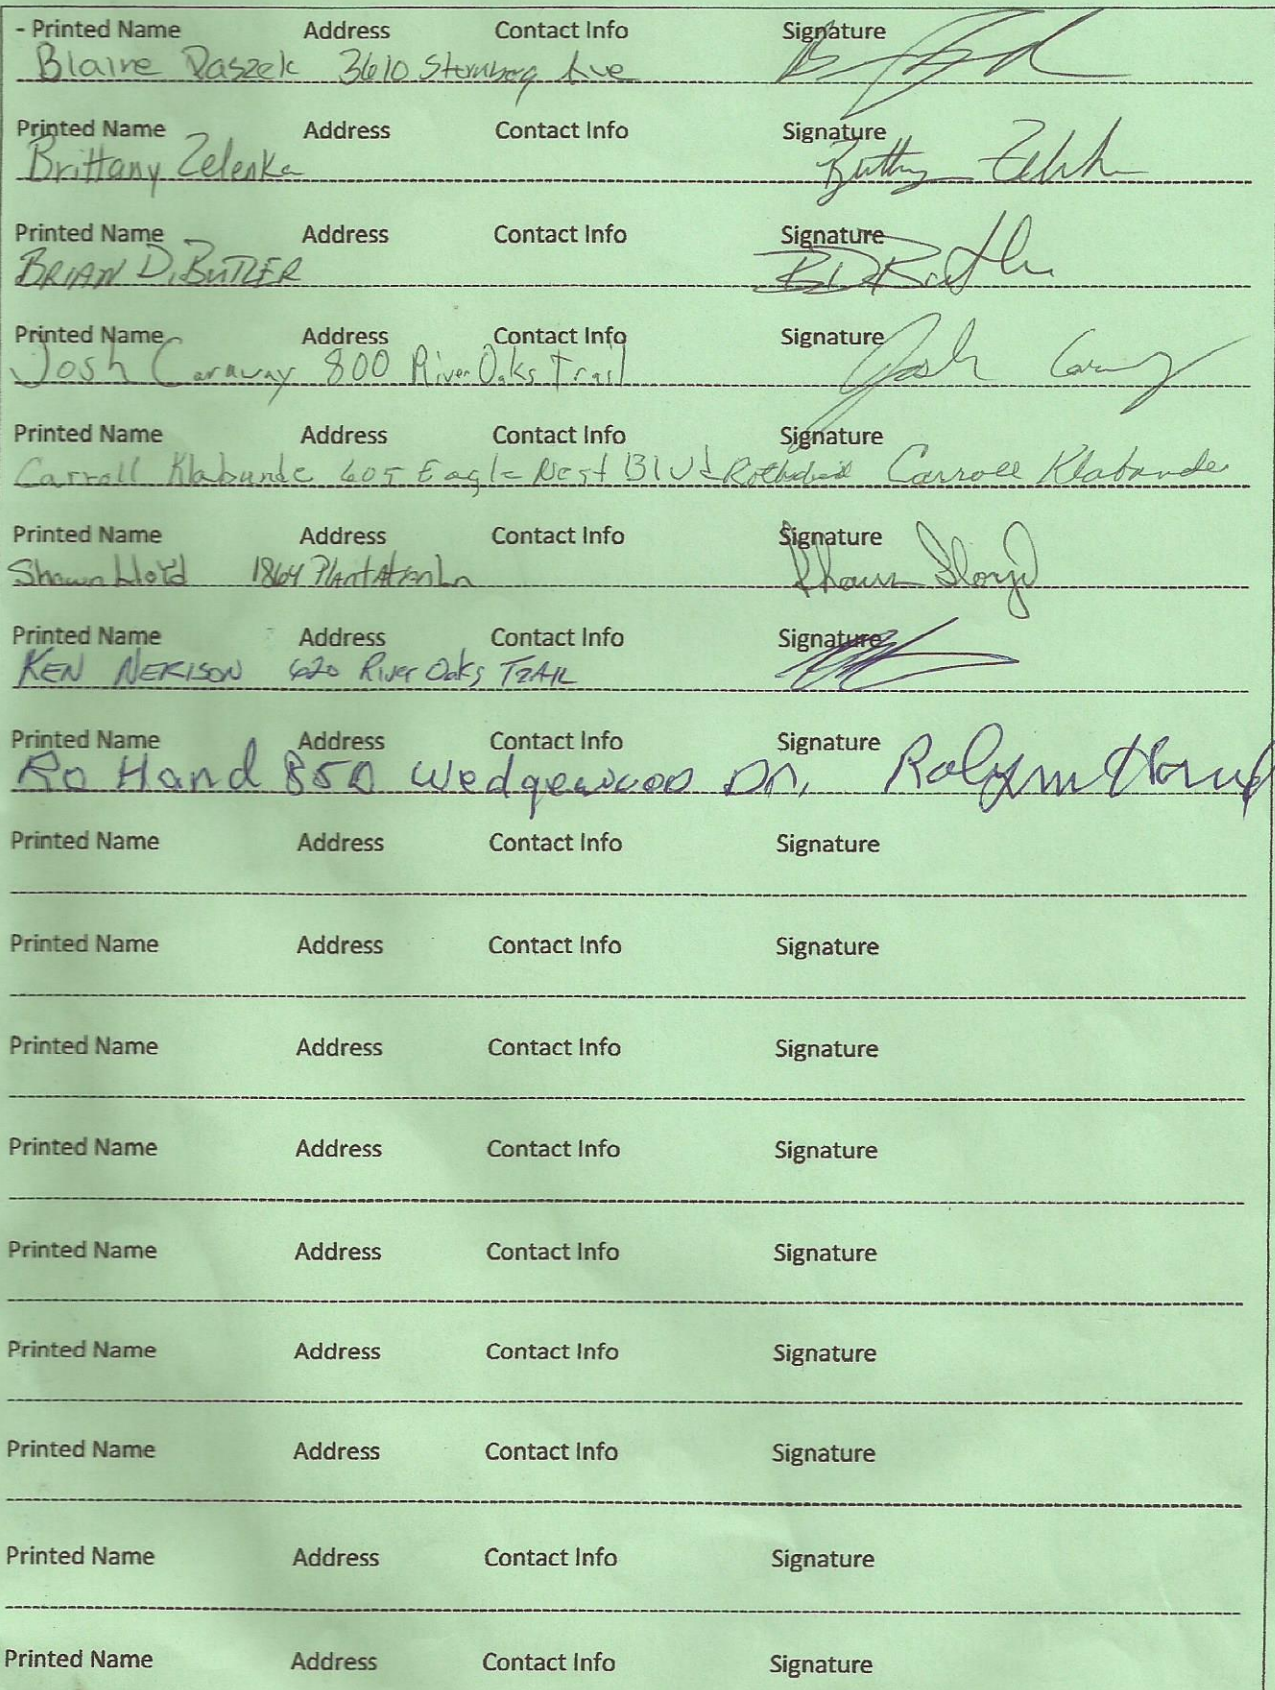 - Printed Name Address Contact Info Signature
Blaine Daszek 3610 Sternberg Ave
Printed Name Address Contact Info Signature
Brittany Zelenka
Printed Name Address Contact Info Signature
BRIAN D. BUTLER BDButler
Printed Name Address Contact Info Signature
Josh Caraway 800 River Oaks Trail Josh
Printed Name Address Contact Info Signature
Carroll Klabunde 605 Eagle Nest Blvd Rothschild Carroll Klabunde
Printed Name Address Contact Info Signature
Shawn Lloyd 1864 PlantAtion Ln Shawn Lloyd
Printed Name Address Contact Info Signature
KEN NERISON 620 River Oaks TRAIL
Printed Name Address Contact Info Signature
Ro Hand 850 Wedgewood Dr. Hand
Printed Name Address Contact Info Signature
Printed Name Address Contact Info Signature
Printed Name Address Contact Info Signature
Printed Name Address Contact Info Signature
Printed Name Address Contact Info Signature
Printed Name Address Contact Info Signature
Printed Name Address Contact Info Signature
Printed Name Address Contact Info Signature
Printed Name Address Contact Info Signature